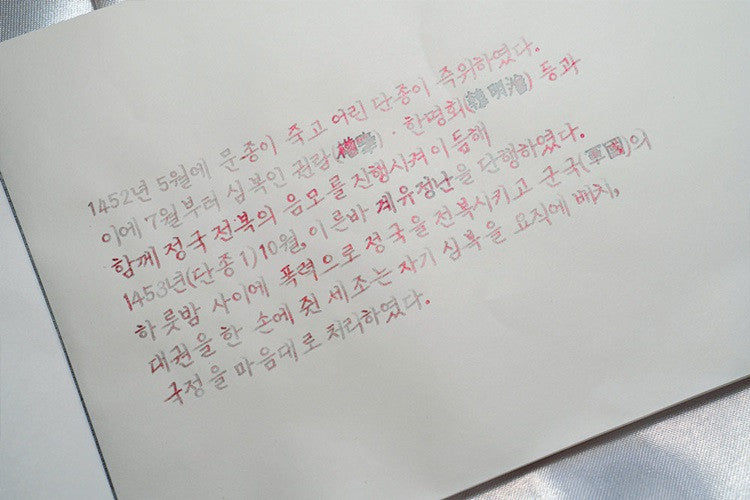 1452년 5월에 문종이 죽고 어린 단종이 즉위하였다.
이에 7월부터 심복인 권람(權擥)·한명회(韓明澮) 등과
함께 정국 전복의 음모를 진행시켜 이듬해
1453년(단종 1)10월, 이른바 계유정난을 단행하였다.
하룻밤 사이에 폭력으로 정국을 전복시키고 군국(軍國)의
대권을 한 손에 쥔 세조는 자기 심복을 요직에 배치,
국정을 마음대로 처리하였다.